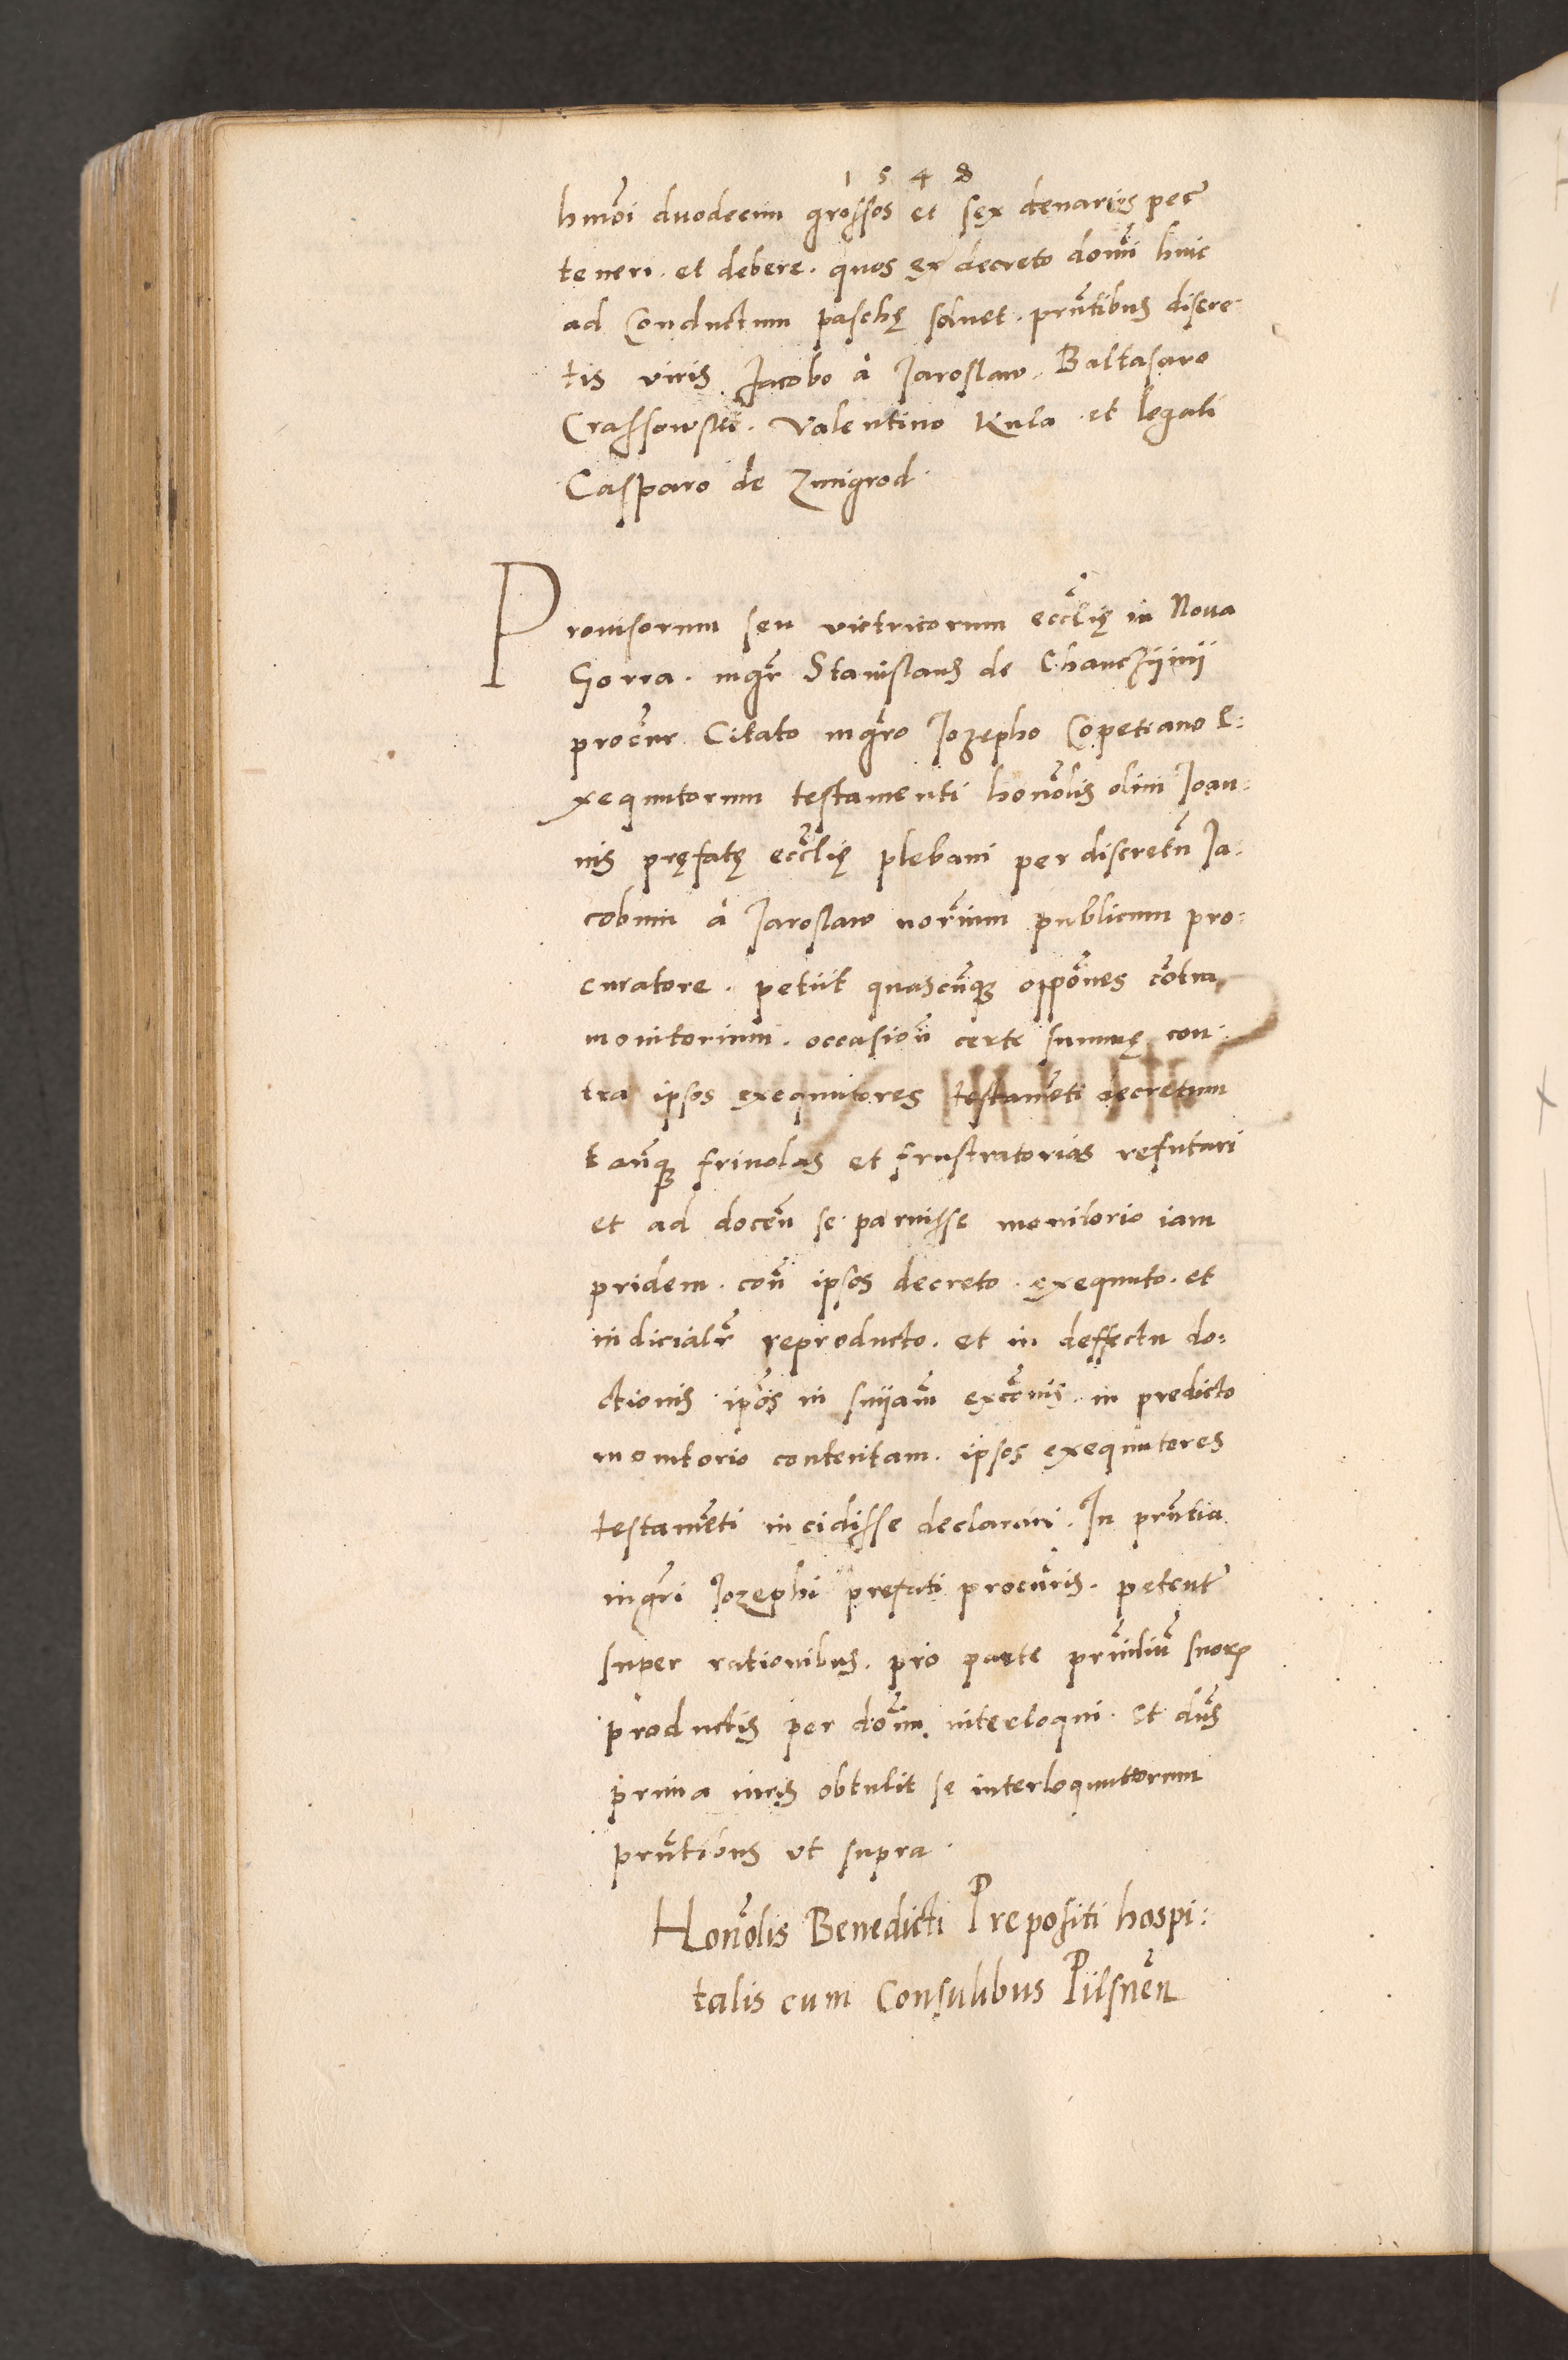 1548
hmõi duodecim grossos et sex denarios pec̃
teneri. et debere. quos ex decreto domĩ huic
ad Conductum paschę soluet. prñtibus discre-
tis viris Jacobo à Jaroslaw. Baltasaro
Crassowski. Valentino Kula et legali
Casparo de Zmigrod.
Prouisorum seu victricorum ecclię in Noua
Gorra. mgr̃ Stanislaus de Chanczijnij
procur̃ Citato mgr̃o Jozepho Copetiano E:
xequutorum testamenti honõlis olim Joan:
nis pręfatę ecclię plebani per discretũ Ja:
cobum à Jaroslaw nor̃ium publicum pro:
curatore. petiit quascũque oppões cõtra
monitorium. occasioñ certe summę con:
tra ipsos exequutores testamẽti decretum
tanq̃ friuolas et frustratorias refutari
et ad doceñ se paruisse monitorio iam
pridem. coñ ipsos decreto. exequuto. et
iudicialr̃ reproducto. et in deffectu do:
ctionis ipõs in sniam̃ excõnis in predicto
monitorio contentam. ipsos exequutores
testamẽti incidisse declarari. In prñtia
mgr̃i Jozephi prefati procuris. petent̃
super rationibus. pro parte prñcipaliũ suorum
productis per dom̃m. interloqui. Et dñs
prima iuris obtulit se interloquuturum
prñtibus vt supra.
Honõlis Benedicti Prepositi hospi:
talis cum Consulibus Pilsnẽn